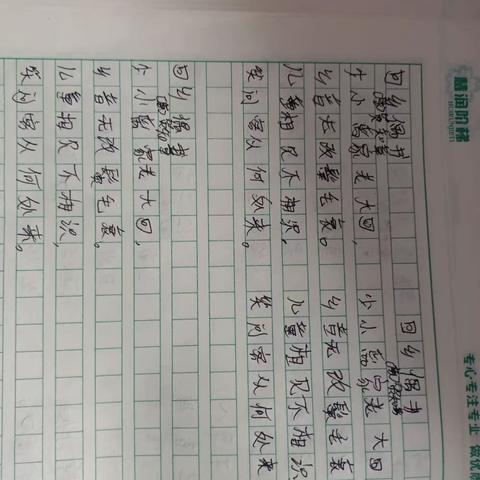 专心专注专业
回乡偶书
贺知章
少小离家老大回,
乡音无改鬓毛衰。
儿童相见不相识,
笑问客从何处来。
回乡偶书
贺知章
少小离家老大回,
乡音无改鬓毛衰。
儿童相见不相识,
笑问客从何处来。
回乡偶书
贺知章
少小离家老大回
乡音无改鬓毛衰
儿童相见不相识
笑问客从何处来